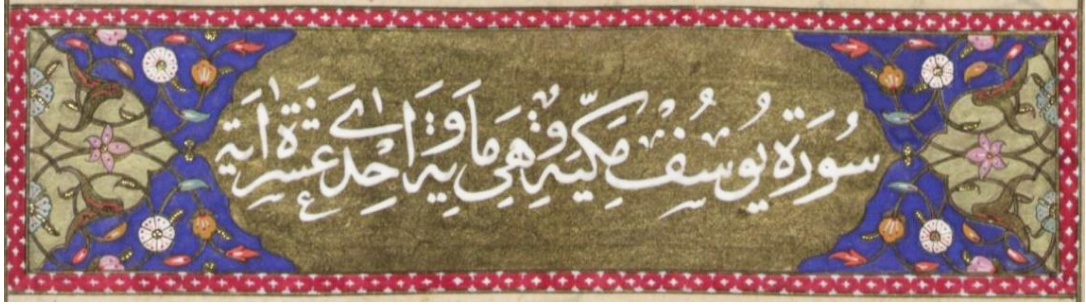 سُورَة يُوسُف مَكِّيَه وَهِىَ مَايَه وَاِحْدٰى عَشَرَة اٰيَة